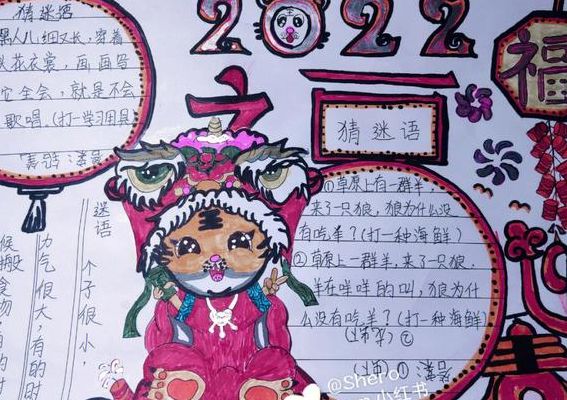 2022
福
猜迷语
人儿细又长,穿着
花衣裳,画画写
它全会,就是不会
歌唱。(打一学习用具
猜迷语
①草原上有一群羊,
来了只狼,狼为什么没
有吃羊?(打一种海鲜)
②草原上一群羊,来了只狼
羊在咩咩的叫,狼为什
么没有吃羊?(打一种海鲜)
迷语
个子很小,
力气很大,有的时
候搬食物
@ShePo
小红书